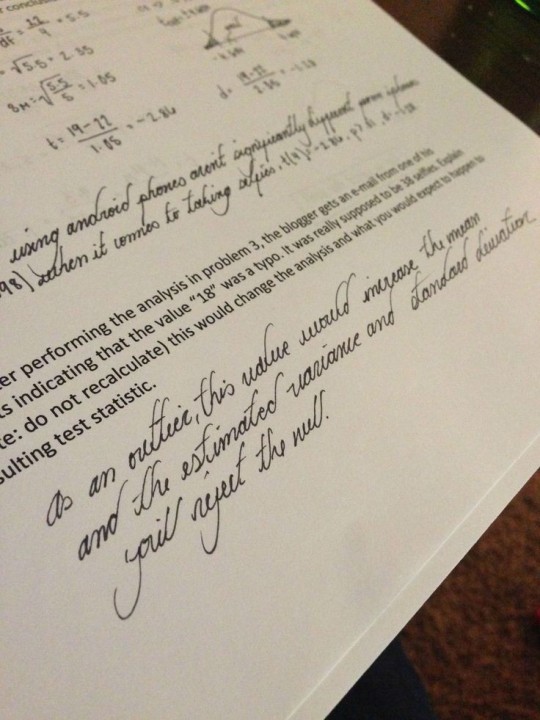 df = 22/4 = 5.5
√5.5 = 2.35
SM = √5.5/5 = 1.05
t = 19-22/1.05 = -2.86
d = 19-22
using android phones aren't significantly different
when it comes to taking selfies, t(4) = -2.86, p > .01, d =
er performing the analysis in problem 3, the blogger gets an e-mail from one of his
ts indicating that the value "18" was a typo. It was really supposed to be 38 selfies. Explain
te: do not recalculate) this would change the analysis and what you would expect to happen to
sulting test statistic.
As an outlier, this value would increase the mean
and the estimated variance and standard diviation
reject the null.